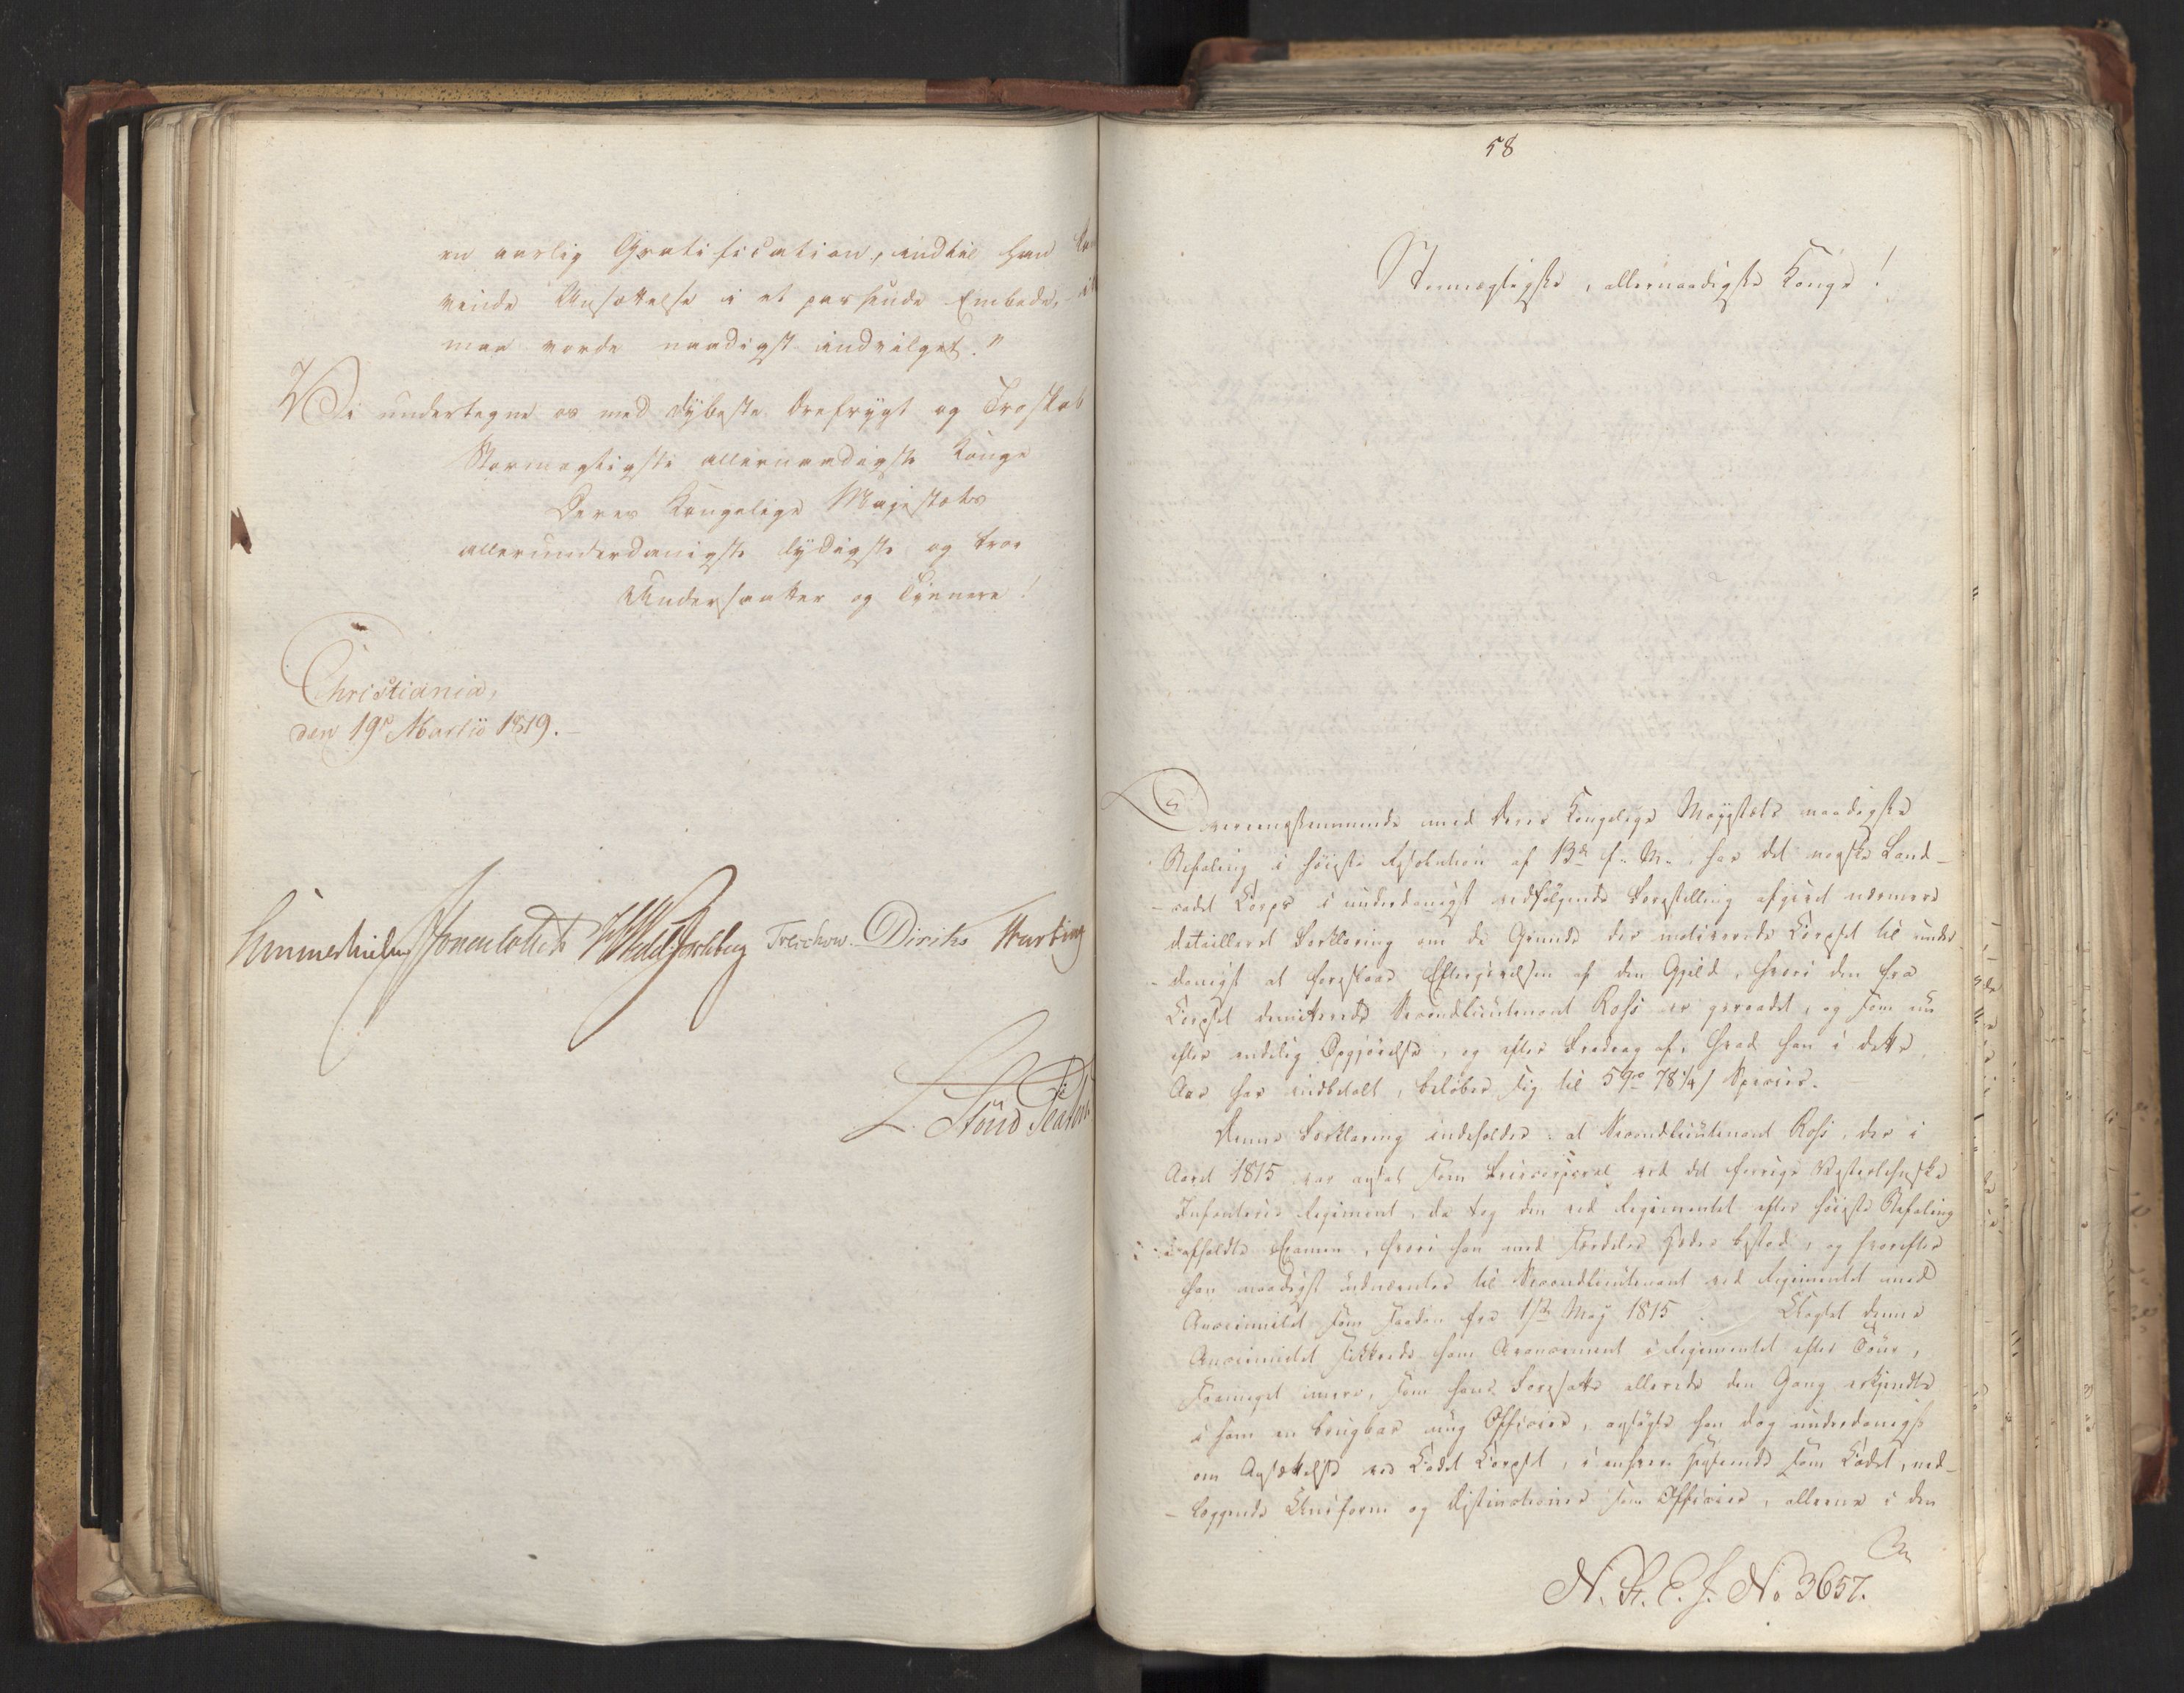 en aarlig Gratification, indtil han
vinde Ansættelse i et passende Embede,
maa vorde naadigst indvilget."
Vi undertegne os med dybeste Ærefrygt og Troskab
Stormægtigste allernaadigste Konge
Deres Kongelige Majestæts
allerunderdanigste lydigste og troe
Undersaatter og Tienere!
Christiania,
den 19de Martii 1819.
Sommerhielm Jonas Collett HWedel Jarlsberg Treschow Diriks Hansteen
58
Stormægtigste, allernaadigste Konge!
Overeensstemmende med Deres Kongelige Majestæts naadigste
Befaling i høieste Resolution af 13de f. M., har det norske Land-
-cadet Corps i underdanigst vedfølgende Forestilling afgivet nærmere
detailleret Forklaring om de Grunde der motiverede Corpset til under-
-danigst at foreslaae Eftergivelsen af den Gjæld, hvori den fra
Corpset dimitterede Secondlieutenant Ross er geraadet, og som nu
efter endelig Opgjørelse, og efter Fradrag af, hvad han i dette
Aar har indbetalt, beløber sig til 59 78 1/4 Species.
Denne Forklaring indeholder: at Secondlieutenant Ross, der i
Aaret 1815 var ansat som Fricorporal ved det forrige Vesterlehnske
Infanterie Regiment, da tog den ved Regimentet efter høieste Befaling
afholdte Examen, hvori han med Særdeles Hæder bestod, og hvorefter
han naadigst udnævntes til Secondlieutenant ved Regimentet med
Anciennitet som saadan fra 1ste May 1815. Uagtet denne
Anciennitet sikkrede ham Avancement i Regimentet efter Tour,
saameget mere, som hans Foresatte allerede den Gang erkjendte
i ham en brugbar ung Officier, ansøgte han dog underdanigst
om Ansættelse ved Cadet Corpset, i enhver Henseende som Cadet, ned-
-læggende Uniform og Distinctioner som Officier, alleene i den
N. St. E. J. No 3657.